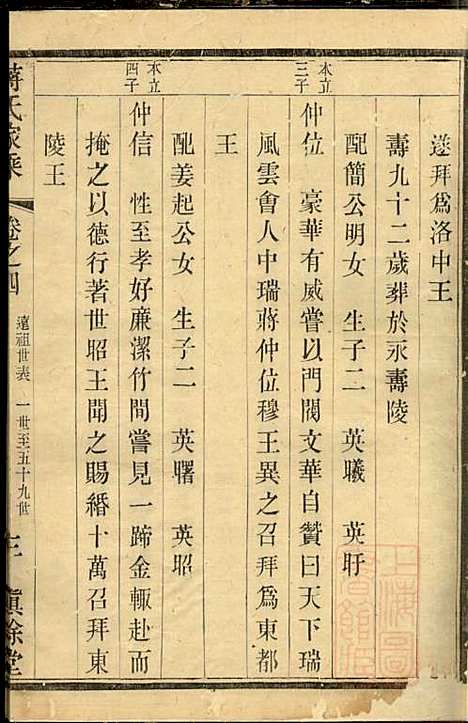 遂拜爲洛中王
壽九十二歲葬於永壽陵
配簡公明女 生子二 英曦 英盱
本立三子
仲位 豪華有威嘗以門閥文華自贊曰天下瑞
風雲會人中瑞蔣仲位穆王異之召拜爲東都
王
配姜起公女 生子二 英曙 英昭
本立四子
仲信 性至孝好廉潔竹間嘗見一蹄金輒赴而
掩之以德行著世昭王聞之賜緡十萬召拜東
陵王
蔣氏家乘 卷之四 遠祖世表 一世至五十九世 三 慎餘堂
上海圖書館藏